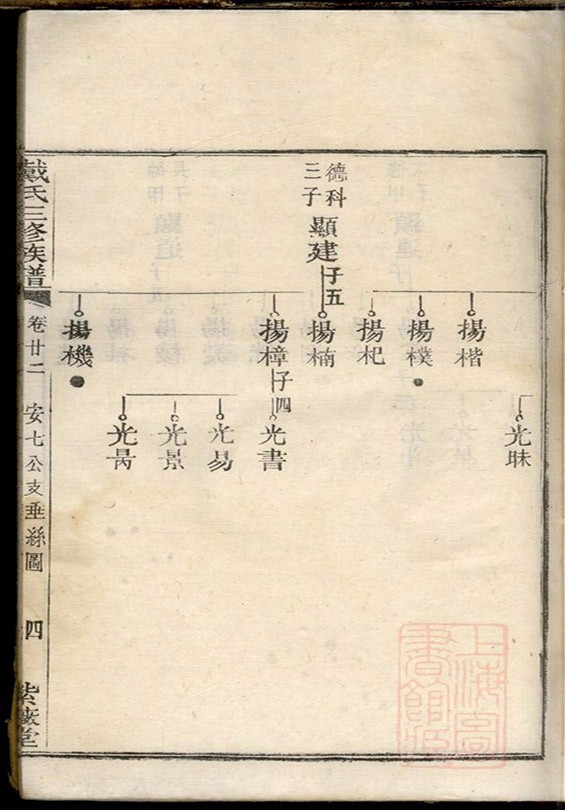 德科
三子
顯建
子五
揚楷
揚樸
揚杞
揚楠
揚樟
子四
揚機
光昧
光書
光易
光景
光昺
戴氏三修族譜
卷廿二
安七公支垂絲圖
四
紫薇堂
上海圖書館藏